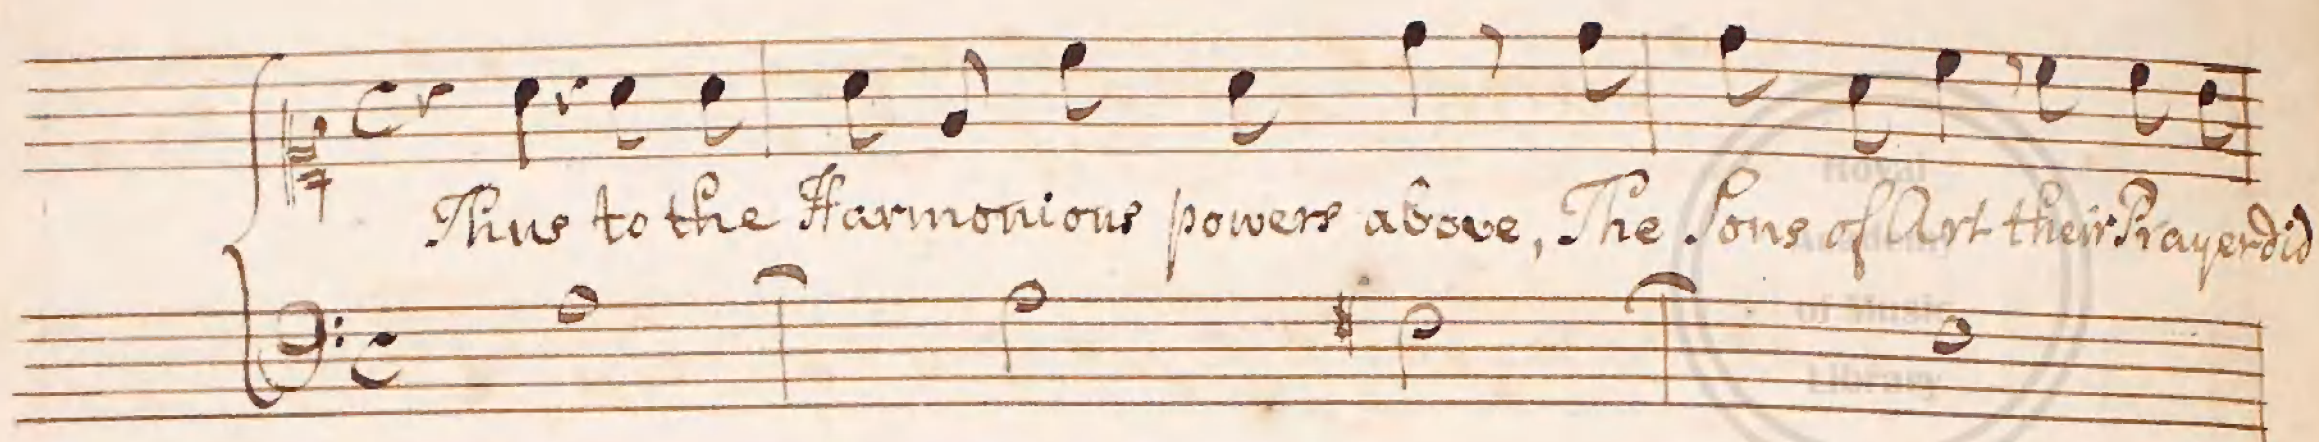 Thus to the Harmonious powers above, The Sons of Art their Prayer did
Royal
Academy
of Music
Library